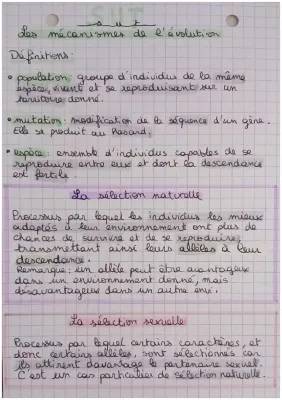 SVT
Les mécanismes de l'évolution
Définitions:
• population: groupe d'individus de la même
espèce, vivent et se reproduisant sur un
territoire donné.
• mutation: modification de la séquence d'un gène.
Elle se produit au hasard.
• espèce: ensemble d'individus capables de se
reproduire entre eux et dont la descendance
est fertile.
La sélection naturelle
Processus par lequel les individus les mieux
adaptés à leur environnement ont plus de
chances de survivre et de se reproduire,
transmettant ainsi leurs allèles à leur
descendance.
Remarque: un allèle peut être avantageux
dans un environnement donné, mais
désavantageux dans un autre envi.
La sélection sexuelle
Processus par lequel certains caractères, et
donc certains allèles, sont sélectionnés car
ils attirent davantage le partenaire sexuel.
C'est un cas particulier de sélection naturelle.